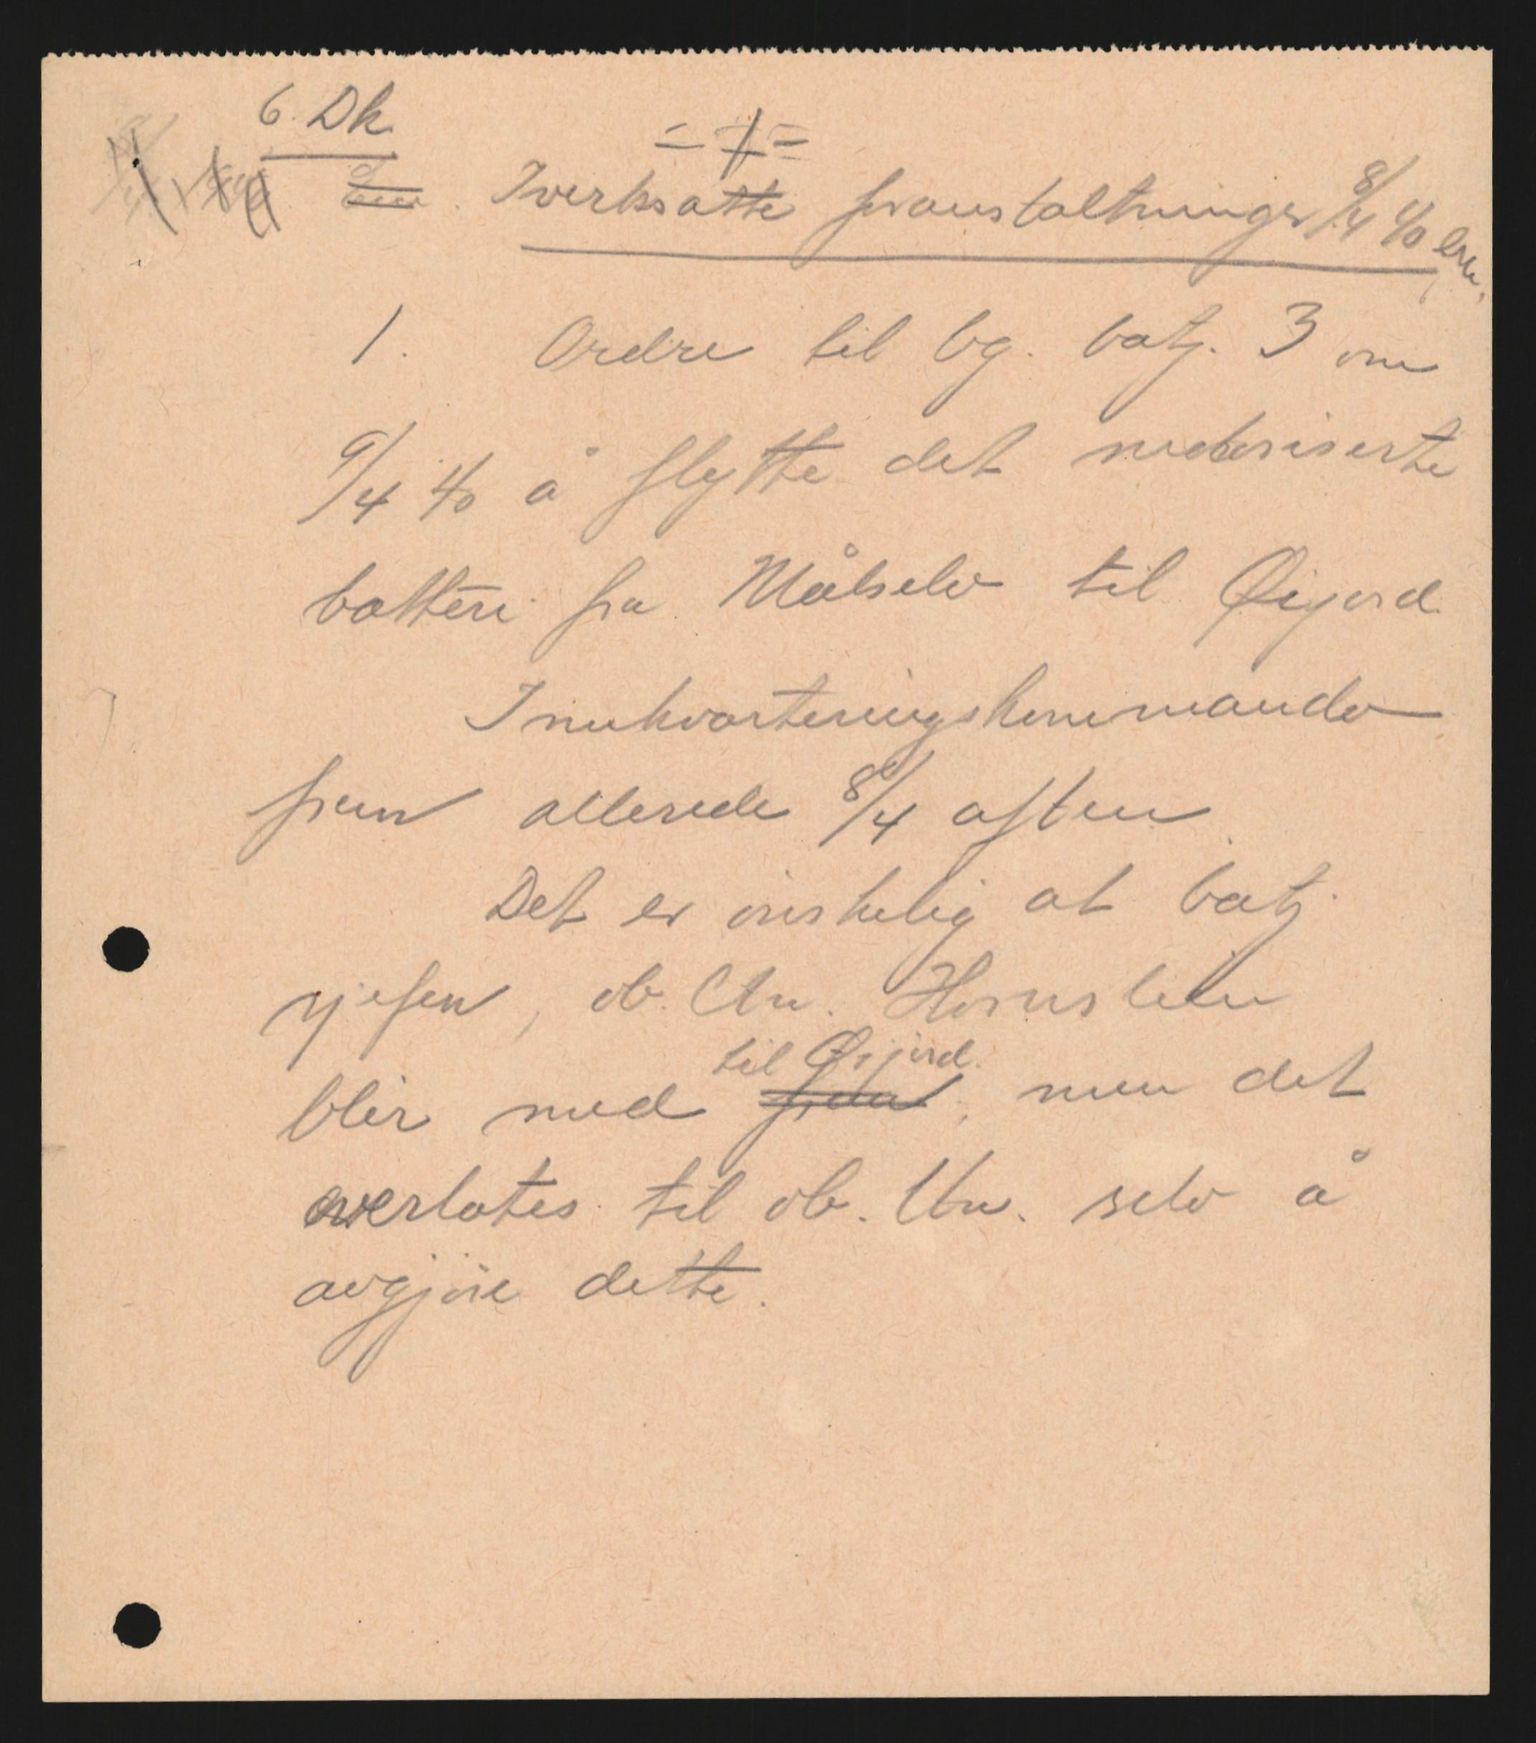 6. Dk.
- 1 -
Iverksatte foranstaltninger 8/4 40
1. Ordre til bg. batj. 3 om
9/4 40 å flytte det motoriserte
batteri fra Målselv til Øijord.
Innkvarteringskommando
frem allerede 8/4 aften.
Det er ønskelig at batj.
sjefen, ob. ltn. Hornslien
til Øijord.
blir med frem, men det
overlates til ob. ltn. selv å
avgjøre dette.